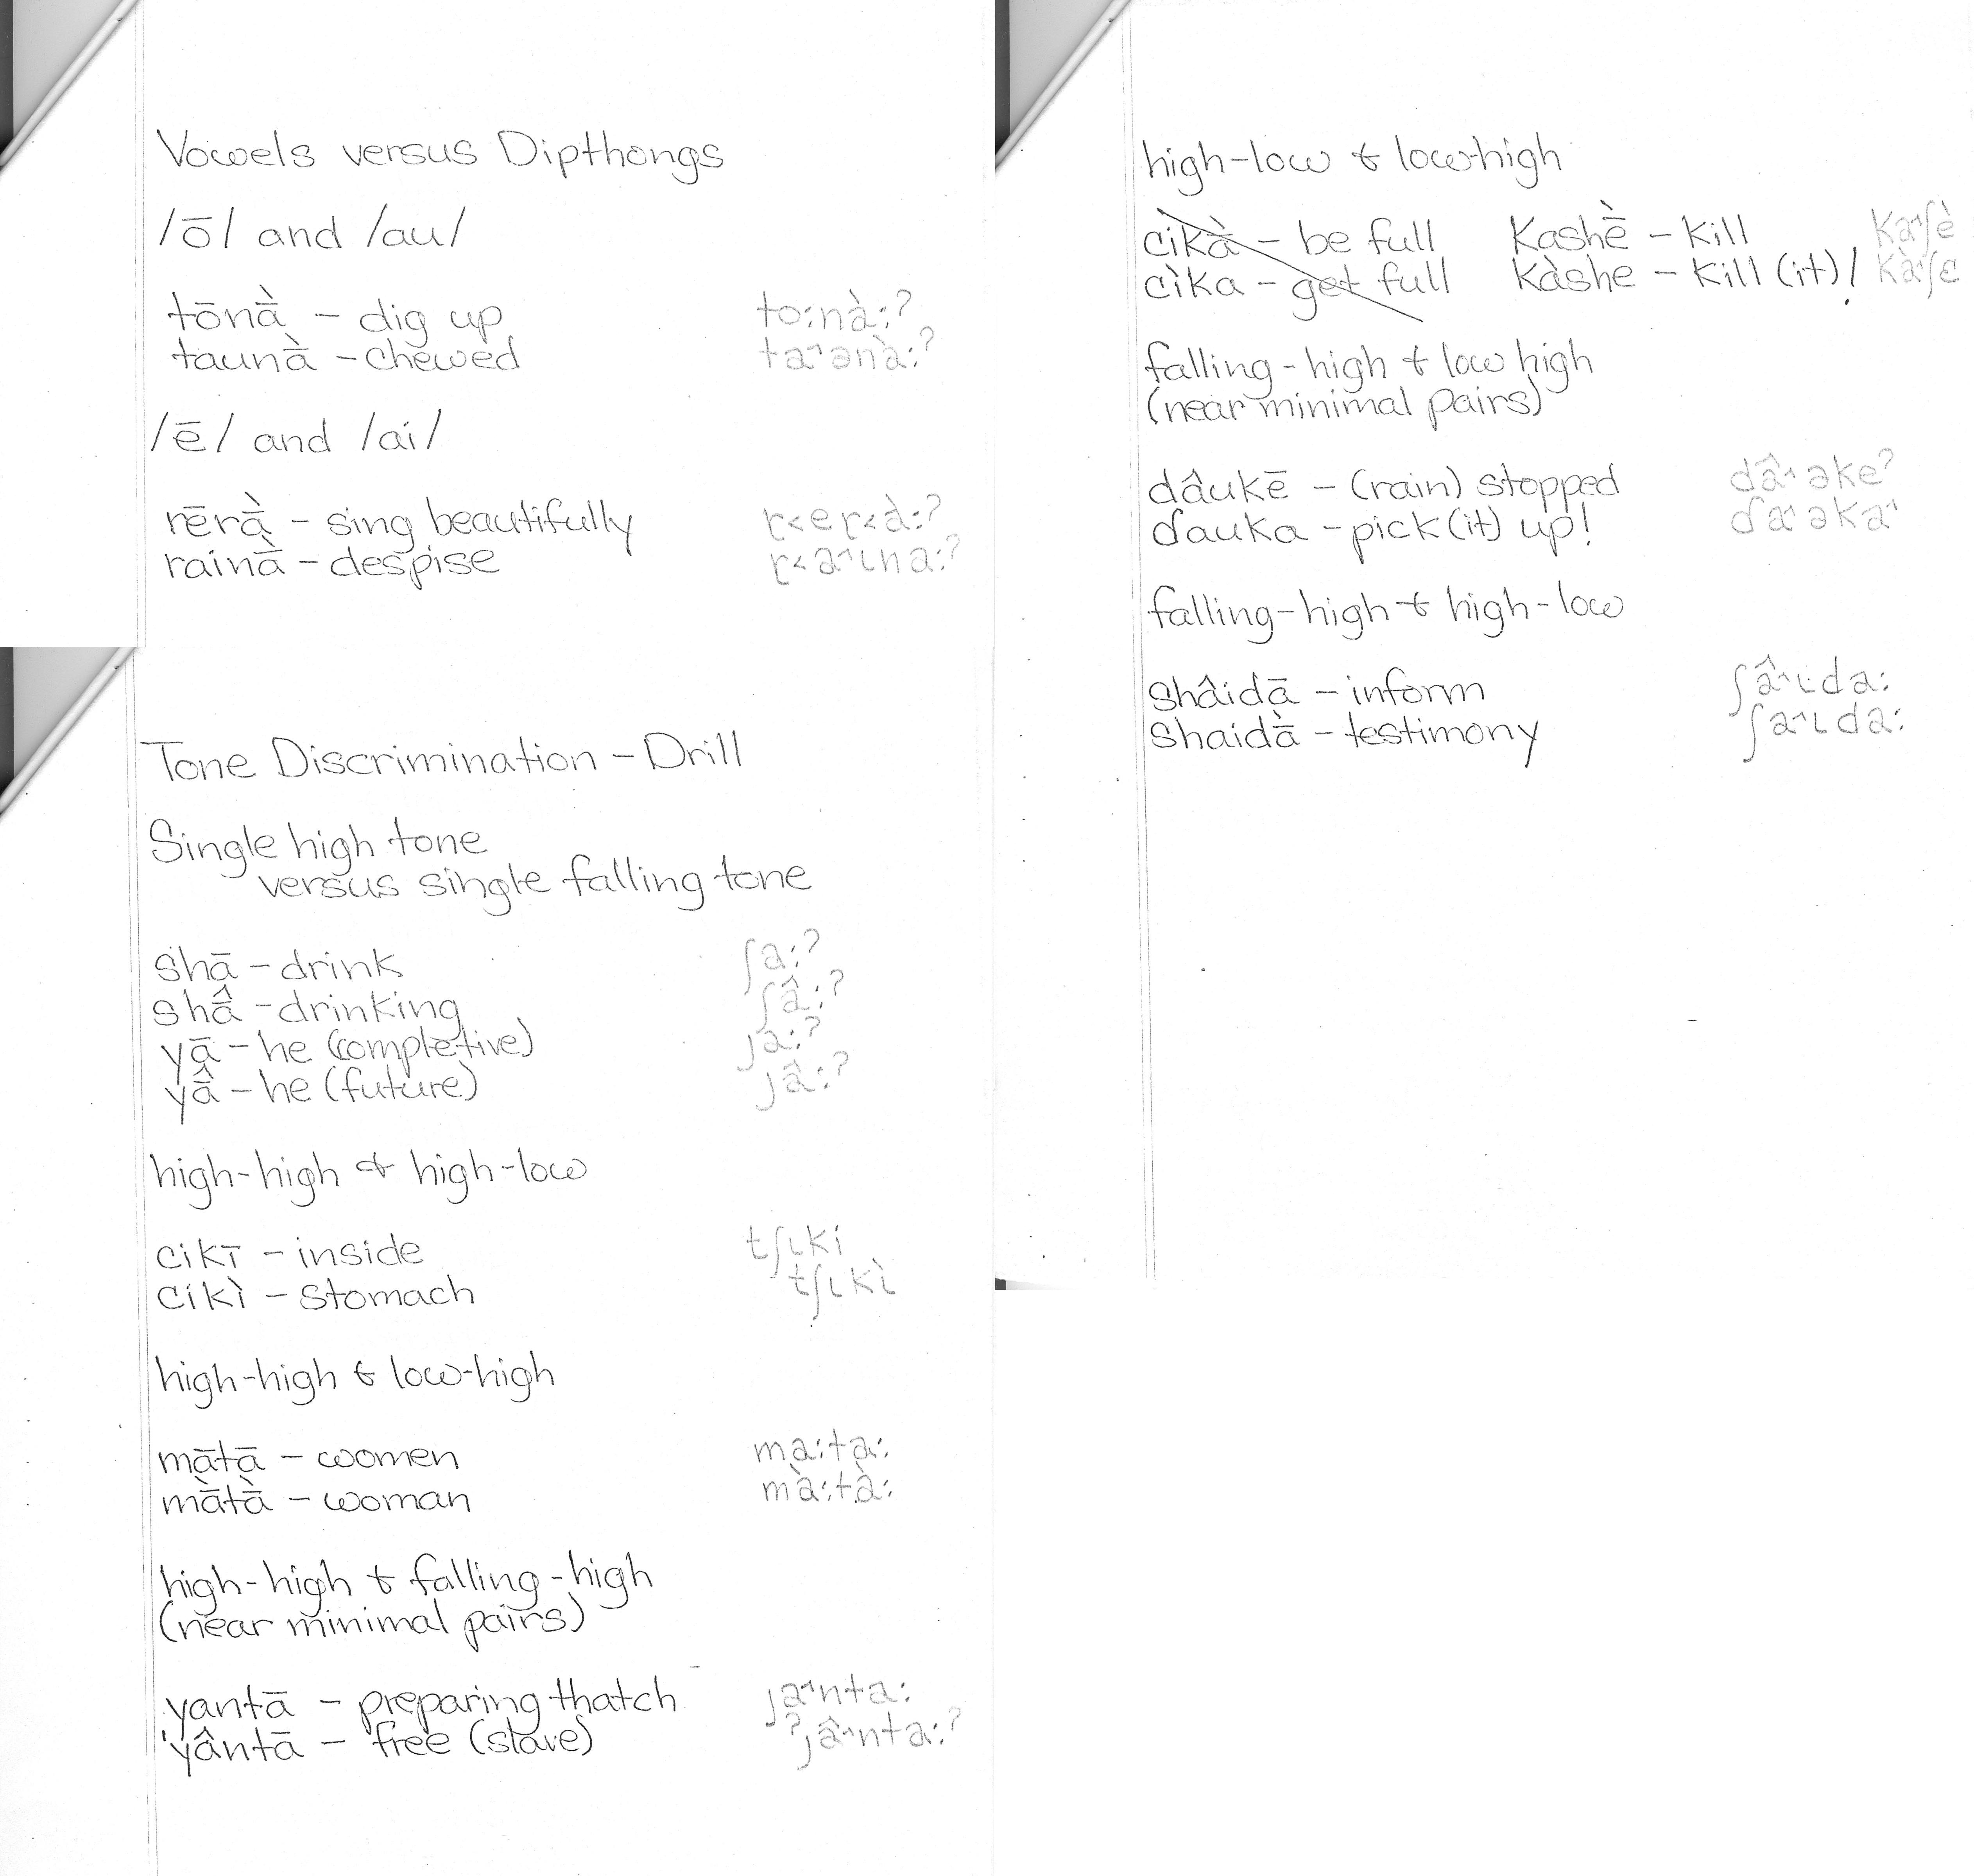 Vowels versus Dipthongs
/ō/ and /au/
tōnā̀ – dig up to:nà:?
taunā̀ – chewed ta˄ənà:?
/ē/ and /ai/
rērā̀ – sing beautifully r˂er˂à:?
rainā̀ – despise r˂a˄ɩna:?
Tone Discrimination – Drill
Single high tone
versus single falling tone
shā – drink ʃa:?
shā̂ – drinking ʃâ:?
yā – he (completive) ja:?
yā̂ – he (future) jâ:?
high-high & high-low
cikī – inside tʃɩki
cikì – stomach tʃɩkì
high-high & low-high
mātā – women ma:ta:
mā̀tā̀ – woman mà:tà:
high-high & falling-high
(near minimal pairs)
yantā – preparing thatch ja˄nta:
'yântā – free (slave) ?jâ˄nta:?
high-low & low-high
cìkà – be full Kashḕ – kill Ka˄ʃè
cìka – get full Kàshe – kill (it)! kà˄ʃɛ
falling-high & low high
(near minimal pairs)
dâukē – (rain) stopped dâ˄əke?
ɗauka – pick (it) up! ɗa˄əka˄
falling-high & high-low
shâidā – inform ʃâ˄ɩda:
shaidā̀ – testimony ʃa˄ɩda: